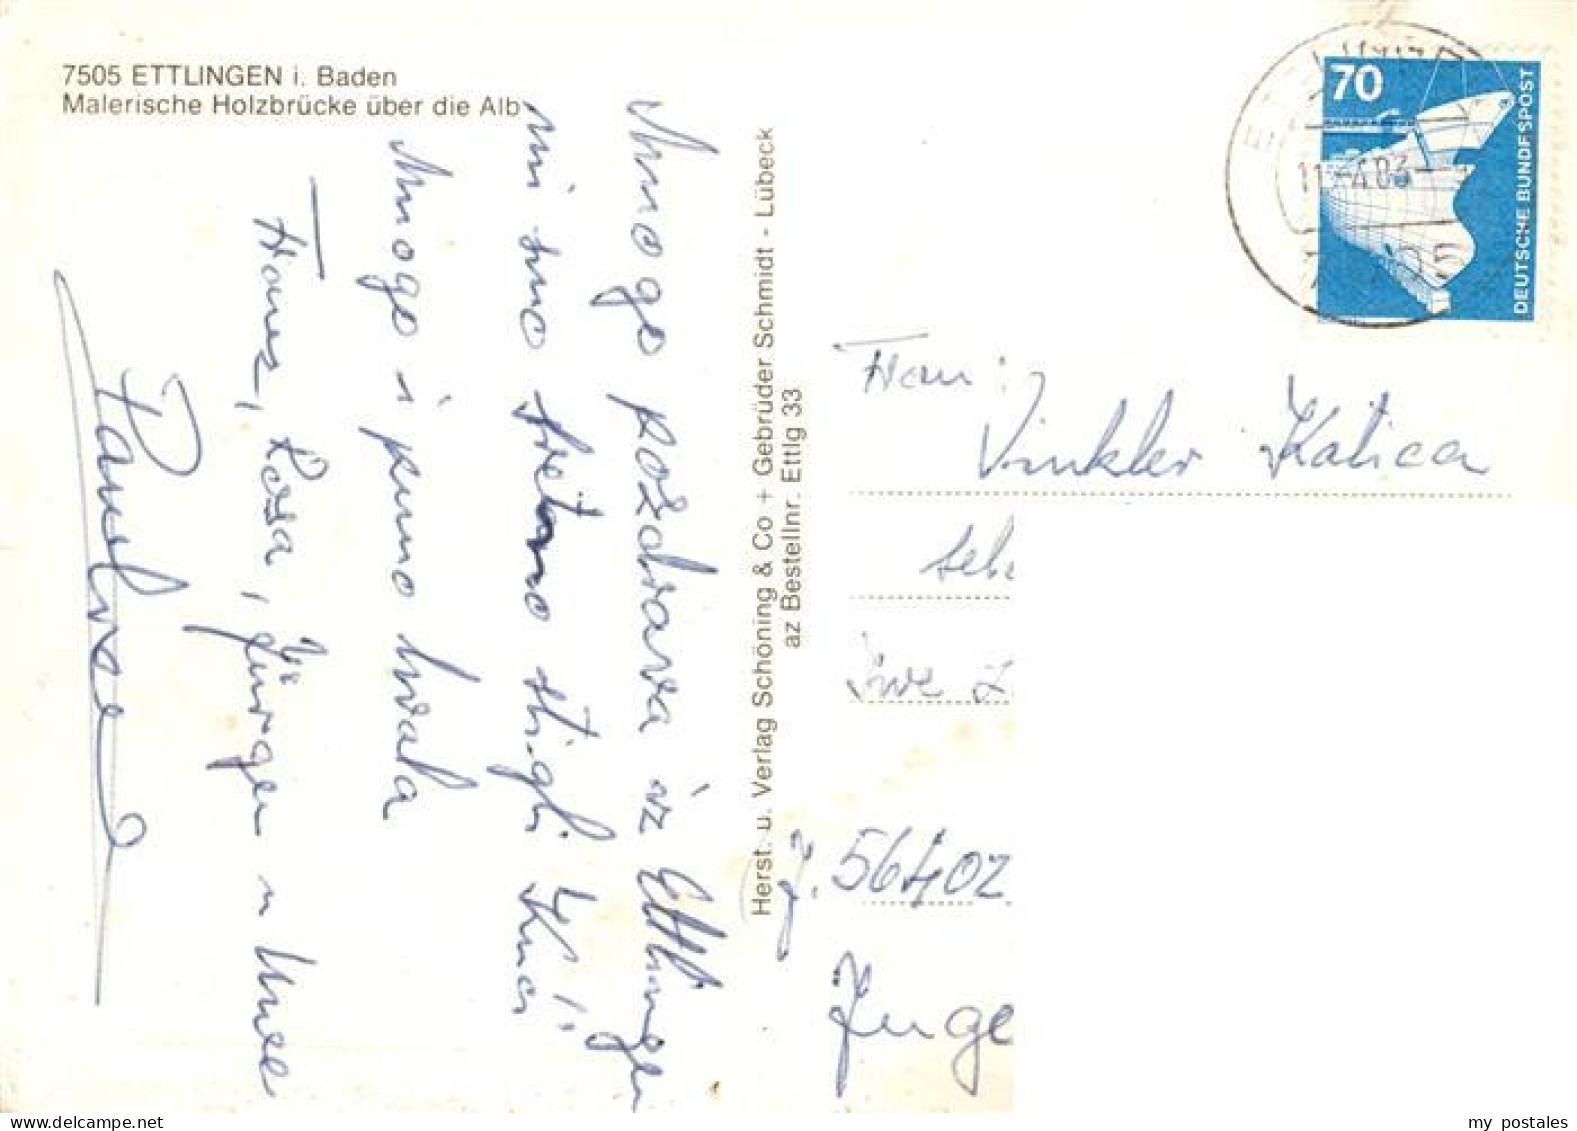 7505 ETTLINGEN i. Baden
Malerische Holzbrücke über die Alb
Mnogo pozdrava iz Ettlingen
mi smo sretno stigli Kući
Mnogo i puno hvala
Rosa, Jürgen u
Herst. u. Verlag Schöning & Co + Gebrüder Schmidt - Lübeck
az Bestellnr. Ettlg 33
70
DEUTSCHE BUNDESPOST
Vinkler Katica
56402
my postales